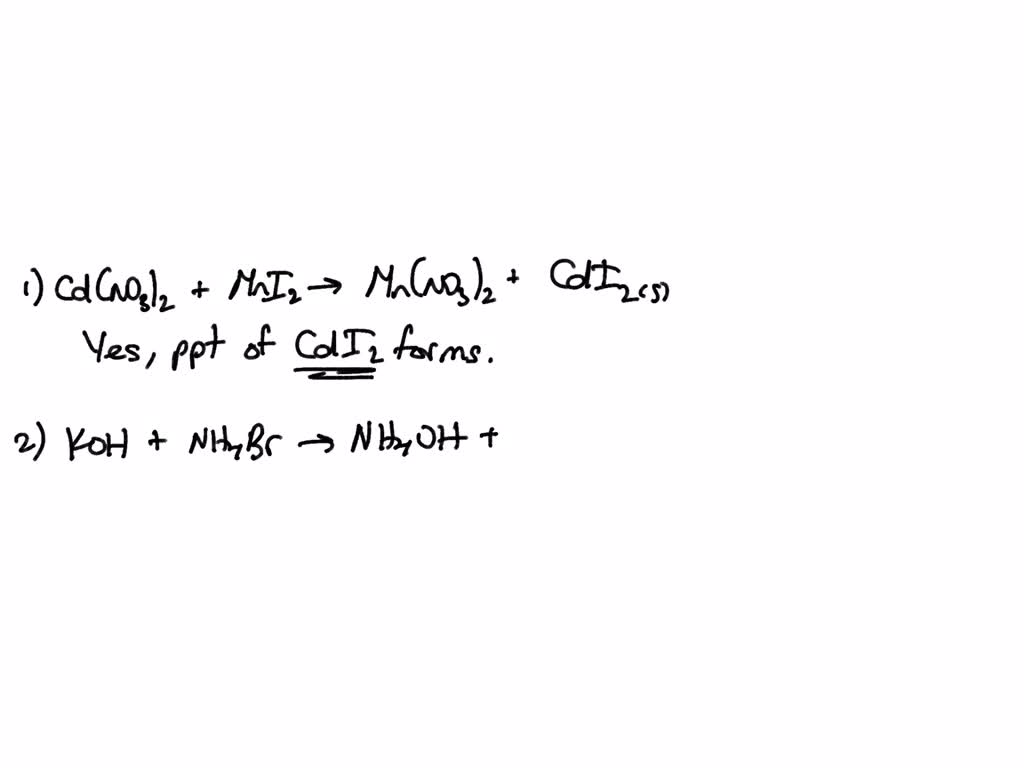 1) Cd(NO3)2 + MnI2 → Mn(NO3)2 + CdI2(s)
Yes, ppt of CdI2 forms.
2) KOH + NH4Br → NH4OH +